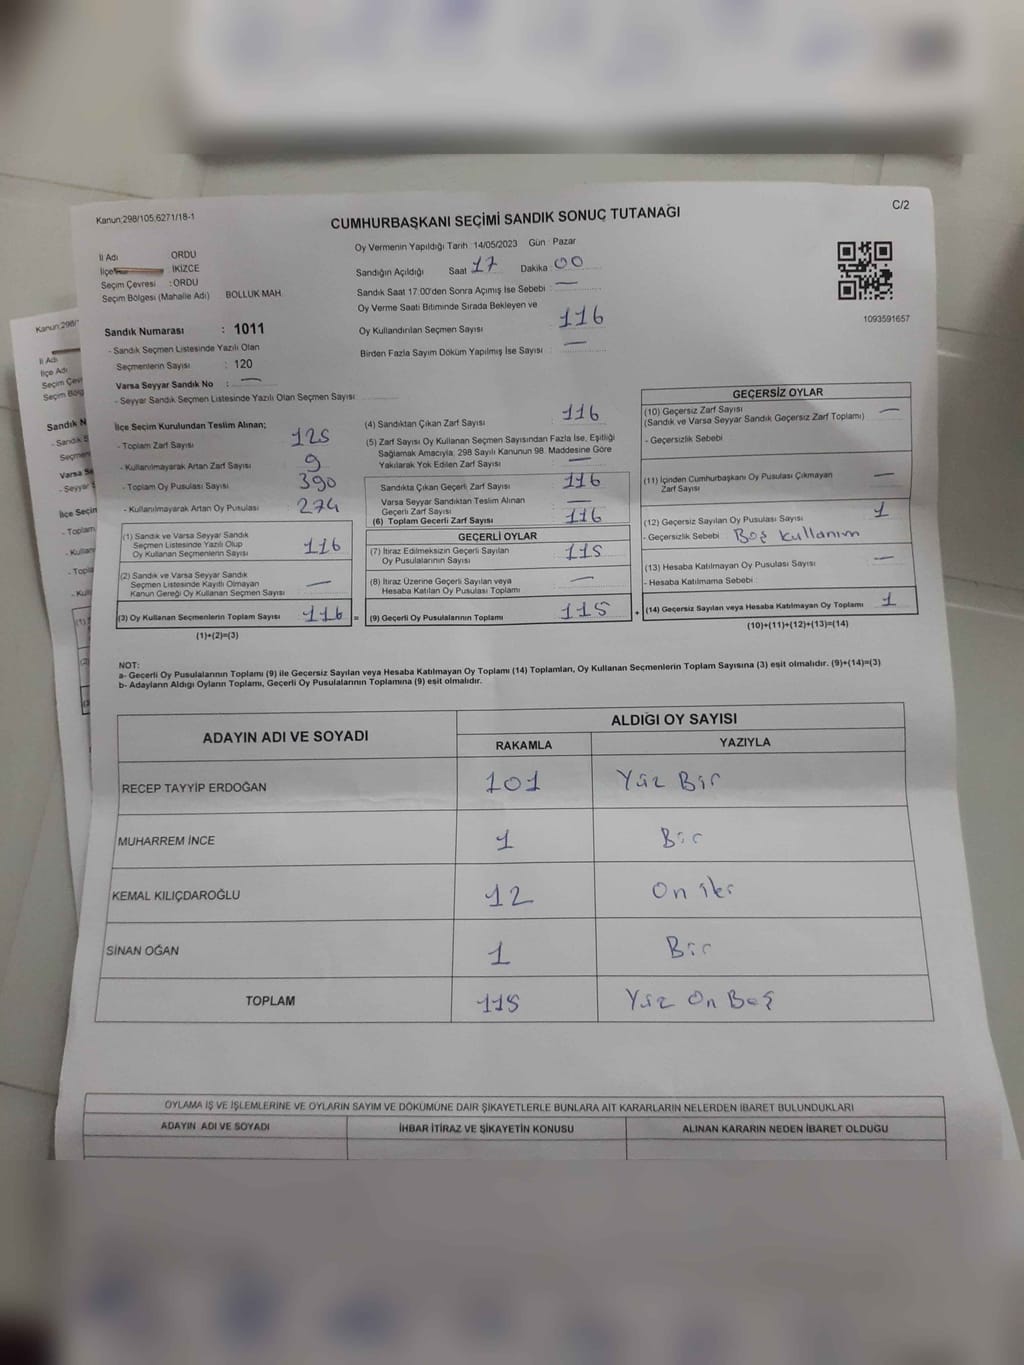 Kanun;298/105,6271/18-1
C/2
CUMHURBAŞKANI SEÇİMİ SANDIK SONUÇ TUTANAĞI
İl Adı ORDU
İlçe İKİZCE
Seçim Çevresi : ORDU
Seçim Bölgesi (Mahalle Adı) BOLLUK MAH.
Oy Vermenin Yapıldığı Tarih 14/05/2023 Gün Pazar
Sandığın Açıldığı Saat 17 Dakika 00
Sandık Saat 17:00'den Sonra Açımış İse Sebebi : —
Oy Verme Saati Bitiminde Sırada Bekleyen ve
Oy Kullandırılan Seçmen Sayısı 116
Birden Fazla Sayım Döküm Yapılmış İse Sayısı —
1093591657
Sandık Numarası : 1011
- Sandık Seçmen Listesinde Yazılı Olan
Seçmenlerin Sayısı : 120
Varsa Seyyar Sandık No : —
- Seyyar Sandık Seçmen Listesinde Yazılı Olan Seçmen Sayısı
İlçe Seçim Kurulundan Teslim Alınan;
- Toplam Zarf Sayısı 125
- Kullanılmayarak Artan Zarf Sayısı 9
- Toplam Oy Pusulası Sayısı 390
- Kullanılmayarak Artan Oy Pusulası 274
(1) Sandık ve Varsa Seyyar Sandık
Seçmen Listesinde Yazılı Olup
Oy Kullanan Seçmenlerin Sayısı 116
(2) Sandık ve Varsa Seyyar Sandık
Seçmen Listesinde Kayıtlı Olmayan
Kanun Gereği Oy Kullanan Seçmen Sayısı —
(3) Oy Kullanan Seçmenlerin Toplam Sayısı 116 =
(1)+(2)=(3)
(4) Sandıktan Çıkan Zarf Sayısı 116
(5) Zarf Sayısı Oy Kullanan Seçmen Sayısından Fazla İse, Eşitliği
Sağlamak Amacıyla, 298 Sayılı Kanunun 98. Maddesine Göre
Yakılarak Yok Edilen Zarf Sayısı —
Sandıkta Çıkan Geçerli Zarf Sayısı 116
Varsa Seyyar Sandıktan Teslim Alınan
Geçerli Zarf Sayısı —
(6) Toplam Geçerli Zarf Sayısı 116
GEÇERLİ OYLAR
(7) İtiraz Edilmeksizin Geçerli Sayılan
Oy Pusulalarının Sayısı 115
(8) İtiraz Üzerine Geçerli Sayılan veya
Hesaba Katılan Oy Pusulası Toplamı —
(9) Geçerli Oy Pusulalarının Toplamı 115 +
GEÇERSİZ OYLAR
(10) Geçersiz Zarf Sayısı —
(Sandık ve Varsa Seyyar Sandık Geçersiz Zarf Toplamı)
- Geçersizlik Sebebi
(11) İçinden Cumhurbaşkanı Oy Pusulası Çıkmayan
Zarf Sayısı —
(12) Geçersiz Sayılan Oy Pusulası Sayısı 1
- Geçersizlik Sebebi Boş Kullanım
(13) Hesaba Katılmayan Oy Pusulası Sayısı —
- Hesaba Katılmama Sebebi
(14) Geçersiz Sayılan veya Hesaba Katılmayan Oy Toplamı 1
(10)+(11)+(12)+(13)=(14)
NOT:
a- Geçerli Oy Pusulalarının Toplamı (9) ile Geçersiz Sayılan veya Hesaba Katılmayan Oy Toplamı (14) Toplamları, Oy Kullanan Seçmenlerin Toplam Sayısına (3) eşit olmalıdır. (9)+(14)=(3)
b- Adayların Aldığı Oyların Toplamı, Geçerli Oy Pusulalarının Toplamına (9) eşit olmalıdır.
ADAYIN ADI VE SOYADI
ALDIĞI OY SAYISI
RAKAMLA YAZIYLA
RECEP TAYYİP ERDOĞAN 101 Yüz Bir
MUHARREM İNCE 1 Bir
KEMAL KILIÇDAROĞLU 12 On iki
SİNAN OĞAN 1 Bir
TOPLAM 115 Yüz On Beş
OYLAMA İŞ VE İŞLEMLERİNE VE OYLARIN SAYIM VE DÖKÜMÜNE DAİR ŞİKAYETLERLE BUNLARA AİT KARARLARIN NELERDEN İBARET BULUNDUKLARI
ADAYIN ADI VE SOYADI İHBAR İTİRAZ VE ŞİKAYETİN KONUSU ALINAN KARARIN NEDEN İBARET OLDUĞU